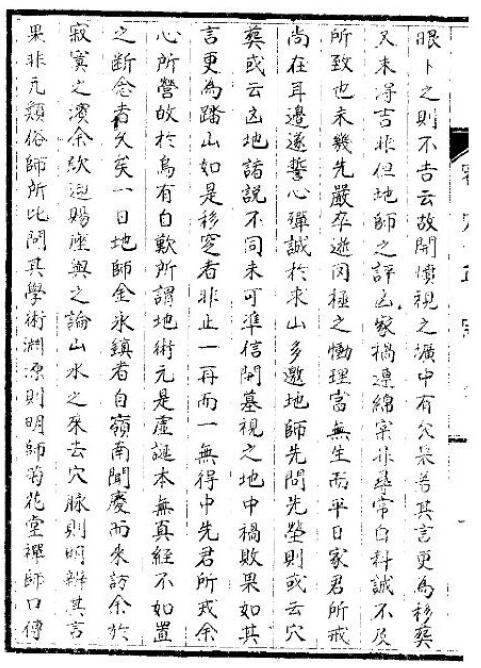 眼卜之則不吉云故開墳視之壙中有欠果若其言更為移葬
又未得吉非但地師之評凶家禍連綿寀非尋常自料誠不及
所致也未幾先嚴卒逝罔極之慟理當無生而平日家君所戒
尚在耳邊遂誓心殫誠於求山多邀地師先問先塋則或云穴
葬或云凶地諸說不同未可準信開墓視之地中禍敗果如其
言更為踏山如是移窆者非止一再而一無得中先君所戒余
心所營故於烏有自歎所謂地術元是虛誕本無真經不如置
之断念者久矣一日地師金氷鎮者自嶺南聞慶而來訪余於
寂寞之濱余欵迎賜座與之論山水之來去穴脉則明辨其言
果非凡類俗師所比問其學術淵源則明師時花堂禪師口傳